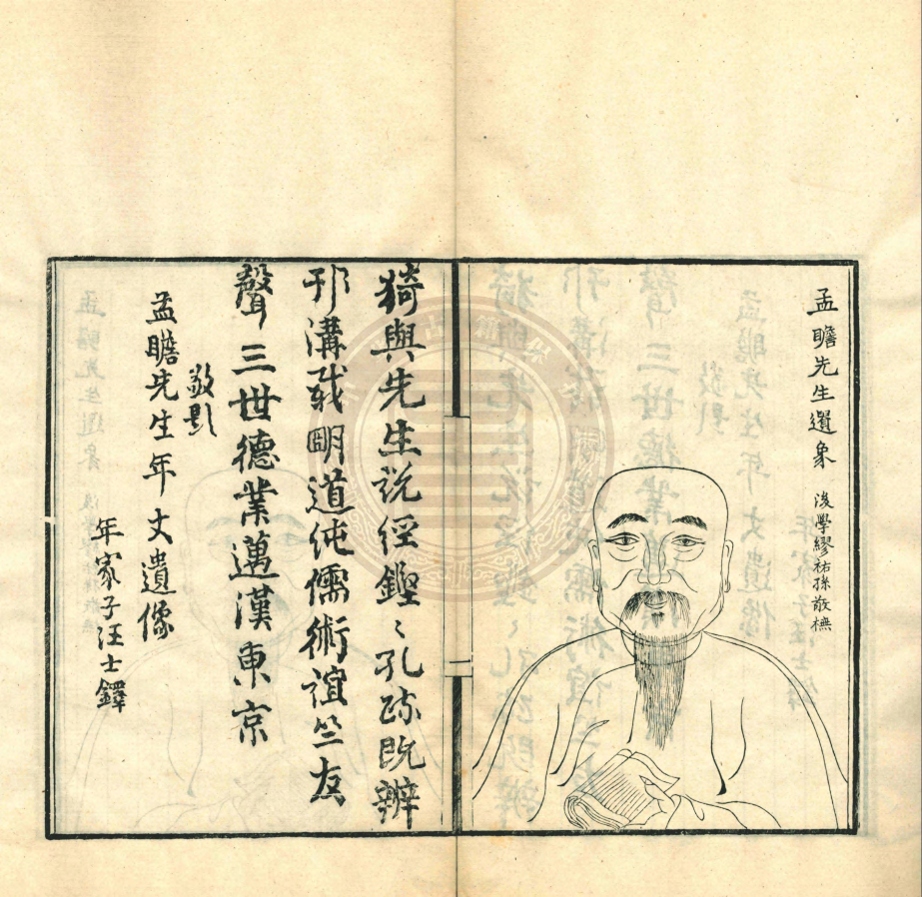 孟瞻先生遺象
後學繆祐孫敬橅
猗與先生說經鏗〻孔疏既辨
邗溝朙道純儒術誼竺友
聲三世德業邁漢東京
敬題
孟瞻先生年丈遺像
年家子汪士鐸